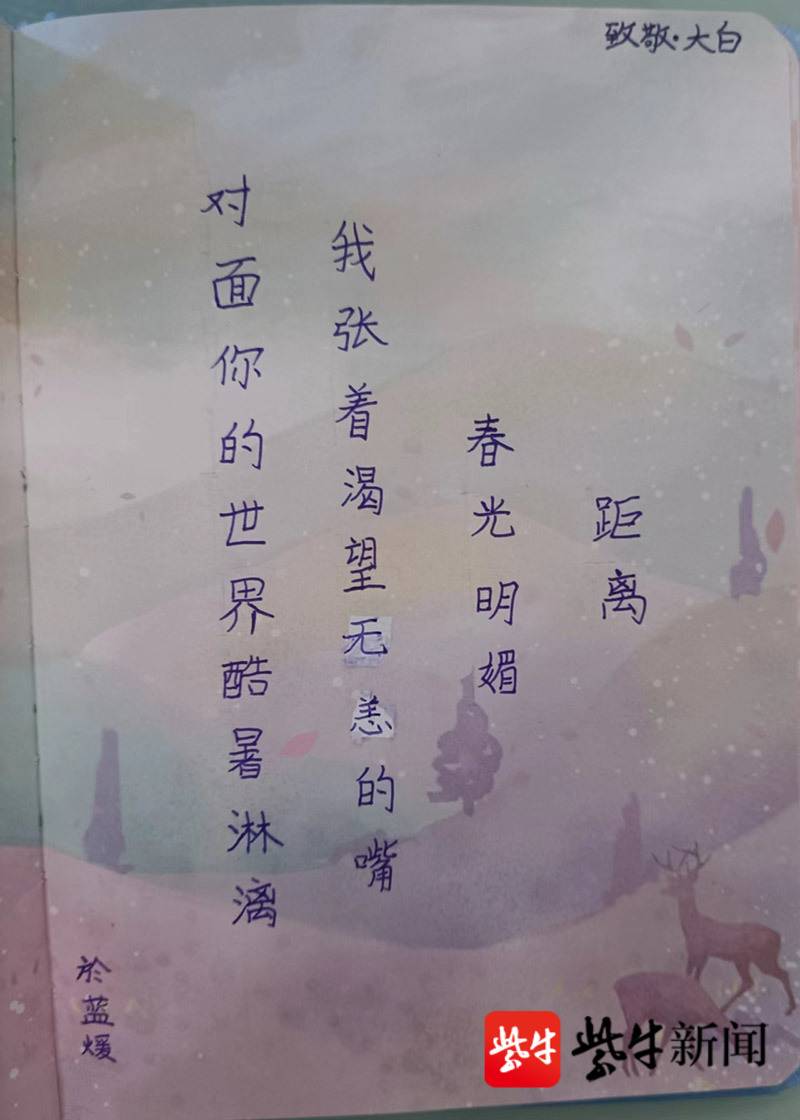 致敬·大白
距离
春光明媚
我张着渴望无恙的嘴
对面你的世界酷暑淋漓
於蓝煖
紫牛 紫牛新闻